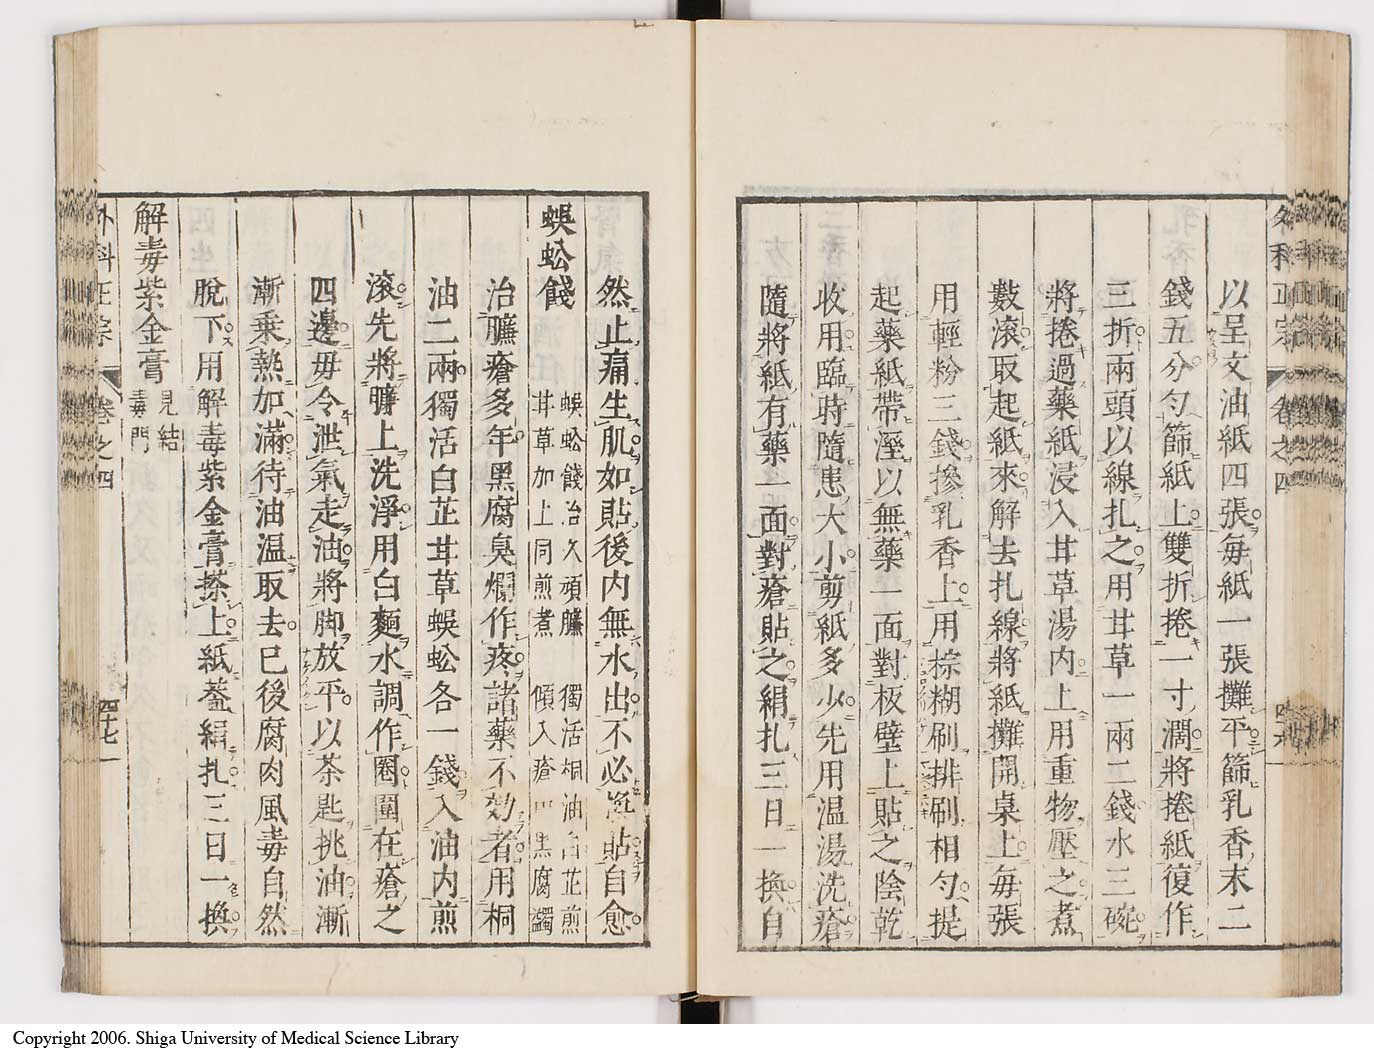 外科正宗 卷之四
以呈文油紙四張每紙一張攤平篩乳香末二
錢五分勻篩紙上雙折捲一寸濶將捲紙復作
三折兩頭以線扎之用甘草一兩二錢水三碗
將捲過藥紙浸入甘草湯内上用重物壓之煮
數滚取起紙來解去扎線將紙攤開桌上每張
用輕粉三錢摻乳香上用棕糊刷排刷相勻提
起藥紙帶溼以無藥一面對板壁上貼之陰乾
收用臨時隨患大小剪紙多少先用温湯洗瘡
隨將紙有藥一面對瘡貼之絹扎三日一換自
然止痛生肌如貼後内無水出不必換貼自愈
蜈蚣餞
蜈蚣餞治久頑臁 獨活桐油白芷煎
甘草加上同煎煮 傾入瘡 黑腐蠲
治臁瘡多年黑腐臭爛作疼諸藥不効者用桐
油二兩獨活白芷甘草蜈蚣各一錢入油内煎
滚先將臁上洗淨用白麵水調作圈圍在瘡之
四邊毋令泄氣走油將脚放平以茶匙挑油漸
漸乗熱加滿待油温取去已後腐肉風毒自然
脫下用解毒紫金膏搽上紙葢絹扎三日一換
解毒紫金膏
見結
毒門
外科正宗 卷之四 四十七
Copyright 2006. Shiga University of Medical Science Library